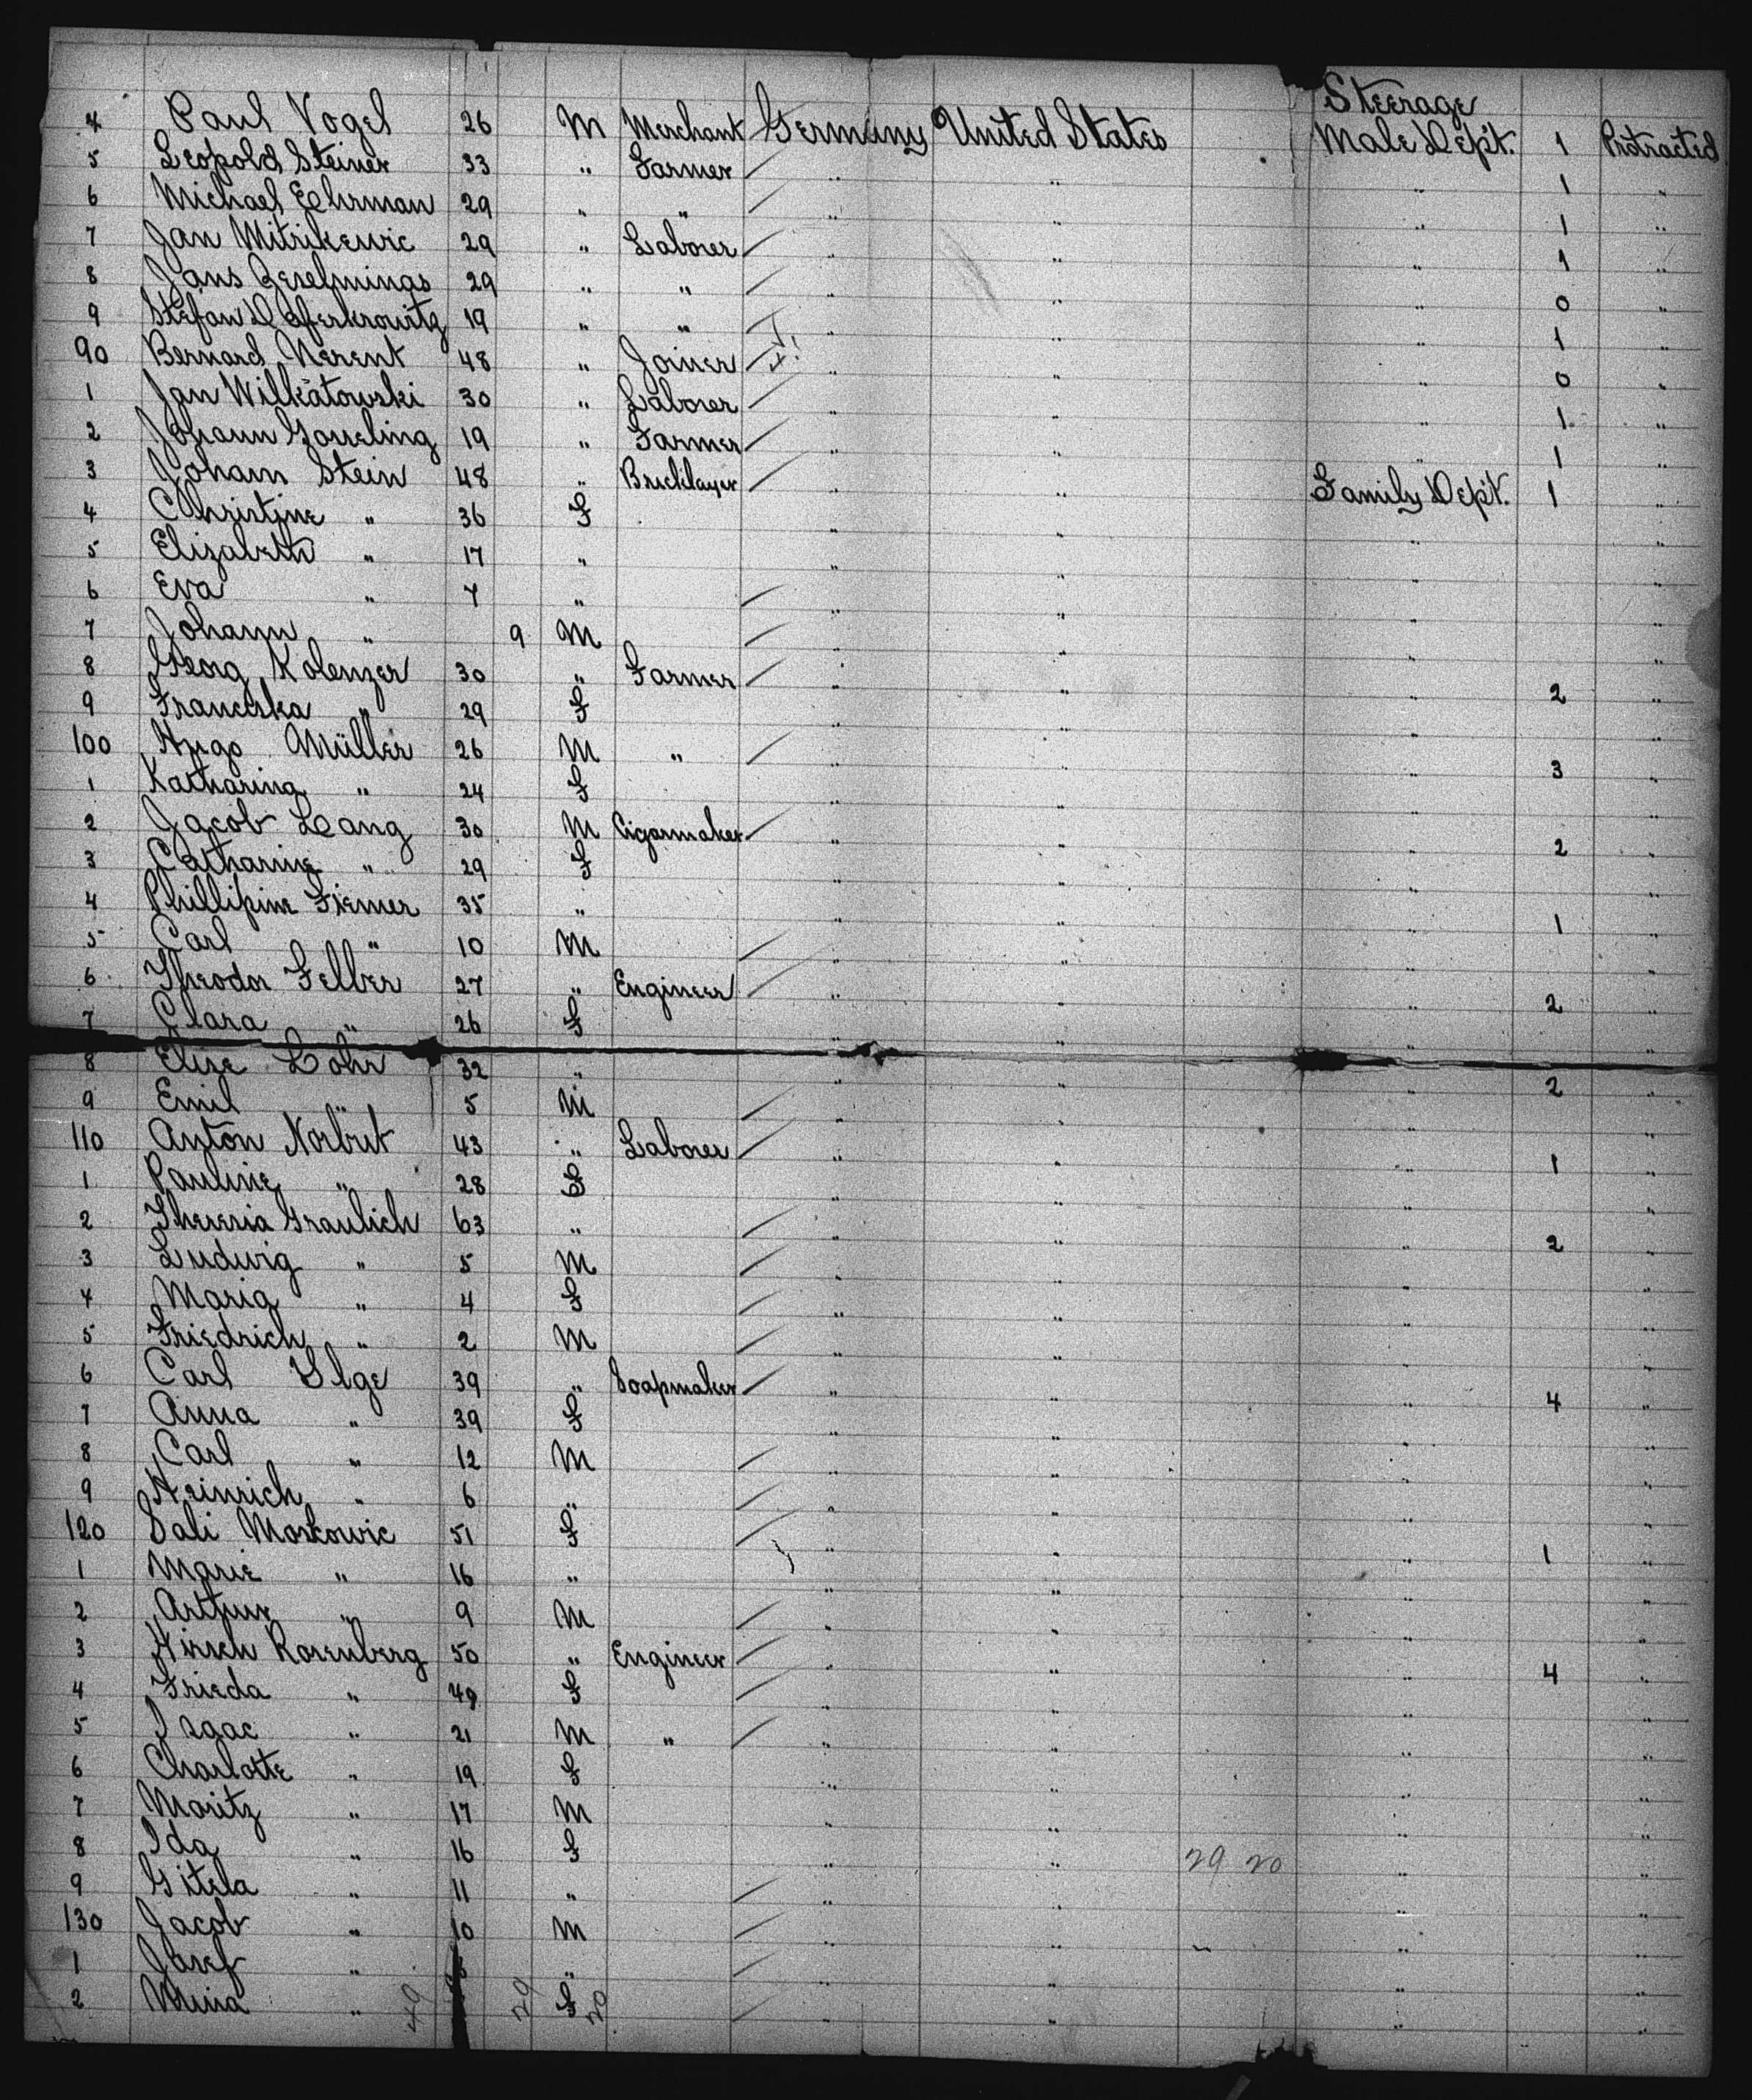 Steerage
4 Paul Vogel 26 M Merchant Germany United States Male Dept. 1 Protracted
5 Leopold Steiner 33 " Farmer " " " 1 "
6 Michael Eehrman 29 " " " " " 1 "
7 Jan Mitrikewic 29 " Laborer " " " 1 "
8 Jans 29 " " " " " 0 "
9 Stefan 19 " " " " " 1 "
90 Bernard Nerent 48 " Joiner " " " 0 "
1 Jan Wilkatowski 30 " Laborer " " " 1 "
2 Johann 19 " Farmer " " " 1 "
3 Joham Stein 48 " Bricklayer " " Family Dept. 1 "
4 Christine " 36 F " " " "
5 Elizabeth " 17 " " " " "
6 Eva " 7 " " " " "
7 Johann " 9 M " " " "
8 Georg Kolenzer 30 " Farmer " " " 2 "
9 Franciska " 29 F " " " "
100 Hugo Müller 26 M " " " " 3 "
1 Katharina " 24 F " " " "
2 Jacob Lang 30 M Cigarmaker " " " 2 "
3 Catharine " 29 F " " " "
4 Phillipine Fiemer 35 " " " " 1 "
5 Carl " 10 M " " " "
6 Theodor Felber 27 " Engineer " " " 2 "
7 Clara " 26 F " " " "
8 Elise Lohr 32 " " " " 2 "
9 Emil " 5 M " " " "
110 Anton Norbut 43 " Laborer " " " 1 "
1 Pauline " 28 F " " " "
2 Theresia Graulich 63 " " " " 2 "
3 Ludwig " 5 M " " " "
4 Maria " 4 F " " " "
5 Friedrich " 2 M " " " "
6 Carl Ilge 39 " Soapmaker " " " 4 "
7 Anna " 39 F " " " "
8 Carl " 12 M " " " "
9 Heinrich " 6 " " " " "
120 Sali Moskowic 51 F " " " 1 "
1 Marie " 16 " " " " "
2 Arthur " 9 M " " " "
3 Hirsch Rosenberg 50 " Engineer " " " 4 "
4 Frieda " 49 F " " " "
5 Isaac " 21 M " " " " "
6 Charlotte " 19 F " " " "
7 Moritz " 17 M " " " "
8 Ida " 16 F " " 29 20 " "
9 Gitela " 11 " " " " "
130 Jacob " 10 M " " " "
1 Josef " " " " " "
2 Mina " F " " " "
49 29 20